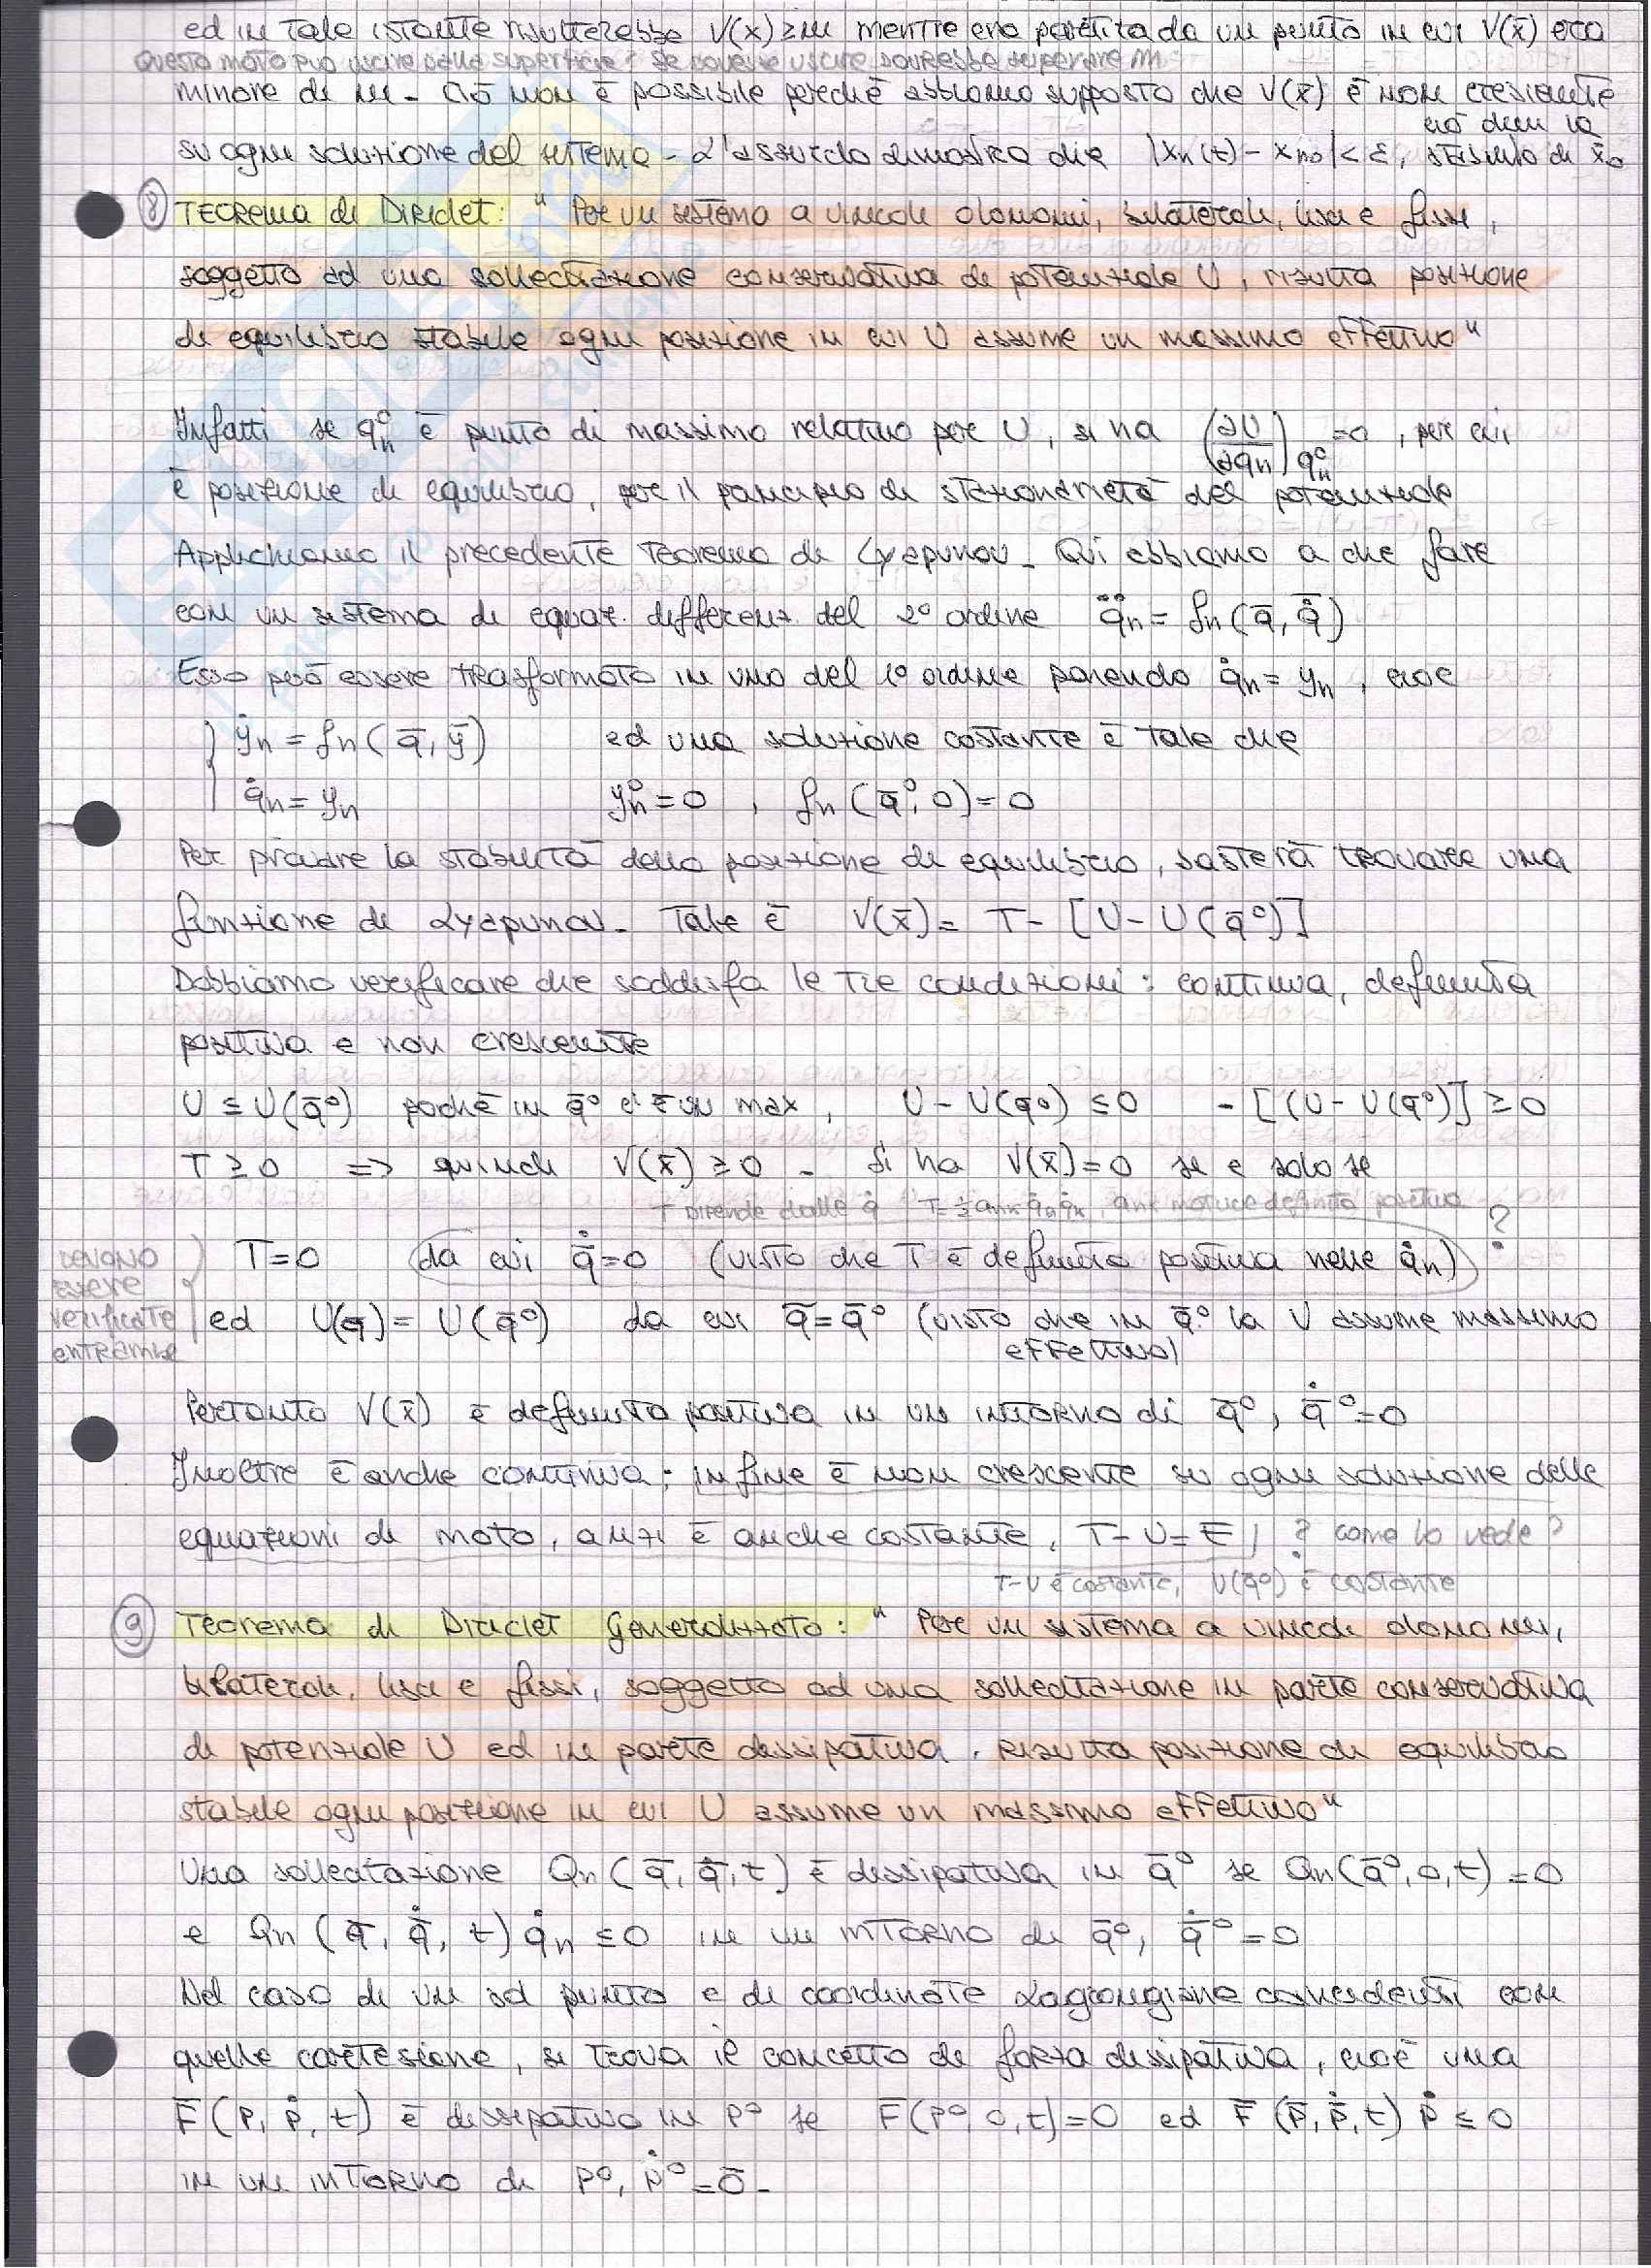 ed in tale istante risulterebbe V(x) ≥ m mentre era partita da un punto in cui V(x̄) era
Questo moto può uscire dalla superficie? Se dovesse uscire dovrebbe superare m
minore di m - Ciò non è possibile perché abbiamo supposto che V(x̄) è non crescente
su ogni soluzione del sistema - L'assurdo dimostra che |xn(t) - xno| < ε,
8 TEOREMA di DIRICLET: "Per un sistema a vincoli olonomi, bilaterali, lisci e fissi,
soggetto ad una sollecitazione conservativa di potenziale U, risulta posizione
di equilibrio stabile ogni posizione in cui U assume un massimo effettivo"
Infatti se qn° è punto di massimo relativo per U, si ha (∂U/∂qn)qn° = 0, per cui
è posizione di equilibrio, per il principio di stazionarietà del potenziale
Applichiamo il precedente Teorema di Lyapunov - Qui abbiamo a che fare
con un sistema di equaz. differenz. del 2° ordine q̈n = fn(q̄, q̄̇)
Esso può essere trasformato in uno del 1° ordine ponendo q̇n = yn, cioè
ẏn = fn(q̄, ȳ) ed una soluzione costante è tale che
q̇n = yn yn° = 0, fn(q̄°, 0) = 0
Per provare la stabilità della posizione di equilibrio, basterà trovare una
funzione di Lyapunov - Tale è V(x̄) = T - [U - U(q̄°)]
Dobbiamo verificare che soddisfa le tre condizioni: continua, definita
positiva e non crescente
U ≤ U(q̄°) poiché in q̄° c'è un max, U - U(q̄°) ≤ 0 - [(U - U(q̄°)] ≥ 0
T ≥ 0 => quindi V(x̄) ≥ 0 - Si ha V(x̄) = 0 se e solo se
T dipende dalle q̇ T = ½ ank q̇n q̇k, ank matrice definita positiva
T = 0 da cui q̄̇ = 0 (visto che T è definita positiva nelle q̇n) ?
DEVONO ESSERE verificate entrambe
ed U(q̄) = U(q̄°) da cui q̄ = q̄° (visto che in q̄° la U assume massimo
effettivo)
Pertanto V(x̄) è definita positiva in un intorno di q̄°, q̄̇° = 0
Inoltre è anche continua; infine è non crescente su ogni soluzione delle
equazioni di moto, anzi è anche costante, T - U = E ? come lo vede?
T-U è costante, U(q̄°) è costante
9 Teorema di Diriclet Generalizzato: "Per un sistema a vincoli olonomi,
bilaterali, lisci e fissi, soggetto ad una sollecitazione in parte conservativa
di potenziale U ed in parte dissipativa, risulta posizione di equilibrio
stabile ogni posizione in cui U assume un massimo effettivo"
Una sollecitazione Qn(q̄, q̄̇, t) è dissipativa in q̄° se Qn(q̄°, 0, t) = 0
e Qn(q̄, q̄̇, t) q̇n ≤ 0 in un intorno di q̄°, q̄̇° = 0
Nel caso di un sol punto e di coordinate Lagrangiane coincidenti con
quelle cartesiane, si trova il concetto di forza dissipativa, cioè una
F̄(P, Ṗ, t) è dissipativa in P° se F̄(P°, 0, t) = 0 ed F̄(P̄, Ṗ, t) Ṗ ≤ 0
in un intorno di P°, Ṗ° = 0̄ -